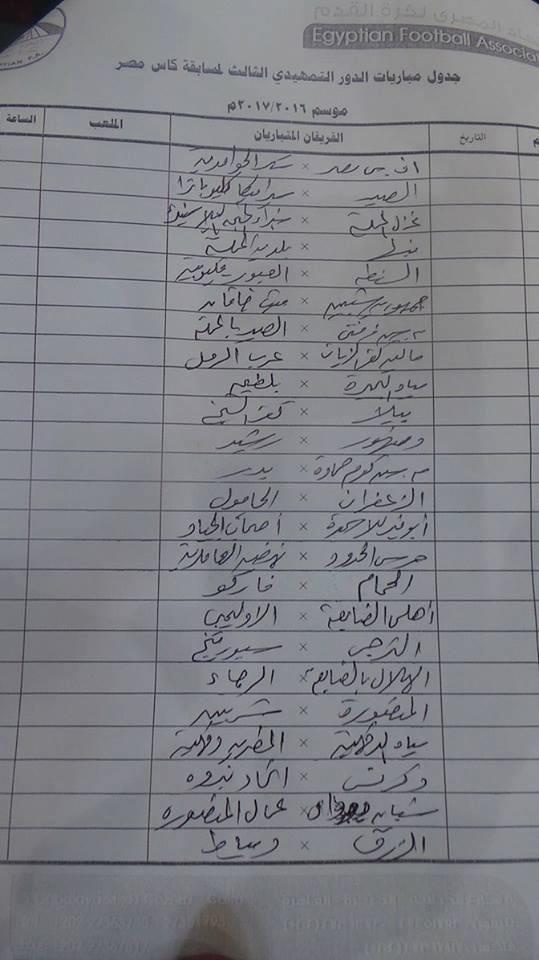 الاتحاد المصرى لكرة القدم
Egyptian Football Associa
جدول مباريات الدور التمهيدي الثالث لمسابقة كاس مصر
موسم ٢٠١٧/٢٠١٦م
م التاريخ الفريقان المتباريان الملعب الساعة
اف سى مصر × سكر الحوامدية
الصيد × سيراميكا كليوباترا
غزل المحلة ×
بنها × بلدية المحلة
السنطة × العبور قليوبية
جمهورية شبين × منوف
× الصيد بالمحلة
مالية كفر الزيات × عرب الرمل
مياه البحيرة × بلطيم
بيلا × كفر الشيخ
دمنهور × رشيد
كوم حمادة × بدر
الزعفران × الحامول
أبوقير للاسمدة × أصحاب الجياد
حرس الحدود × نهضة العامرية
الحمام × فاركو
أهلى الضبعة × الاوليمبى
الترجى × سبورتنج
الهلال بالضبعة × الرجاء
المنصورة × شربين
مياه الدقهلية × المطرية دقهلية
دكرنس × اتحاد نبروه
شبان × عمال المنصورة
الزرقا × دمياط